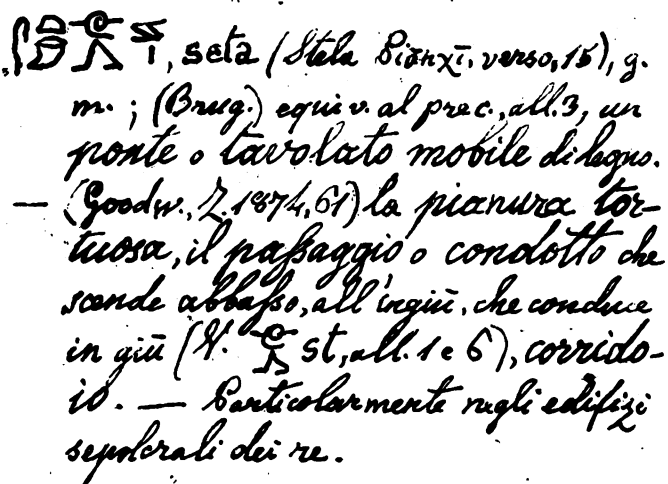 , seta (Stela Piānχī, verso, 15), g.
m. ; (Brug.) equiv. al prec., all. 3, un
ponte o tavolato mobile di legno.
— (Goodw., Z. 1874, 61) la pianura tor-
tuosa, il passaggio o condotto che
scende abbasso, all'ingiù, che conduce
in giù (V. st, all. 1 e 6), corrido-
io. — Particolarmente negli edifizi
sepolcrali dei re.